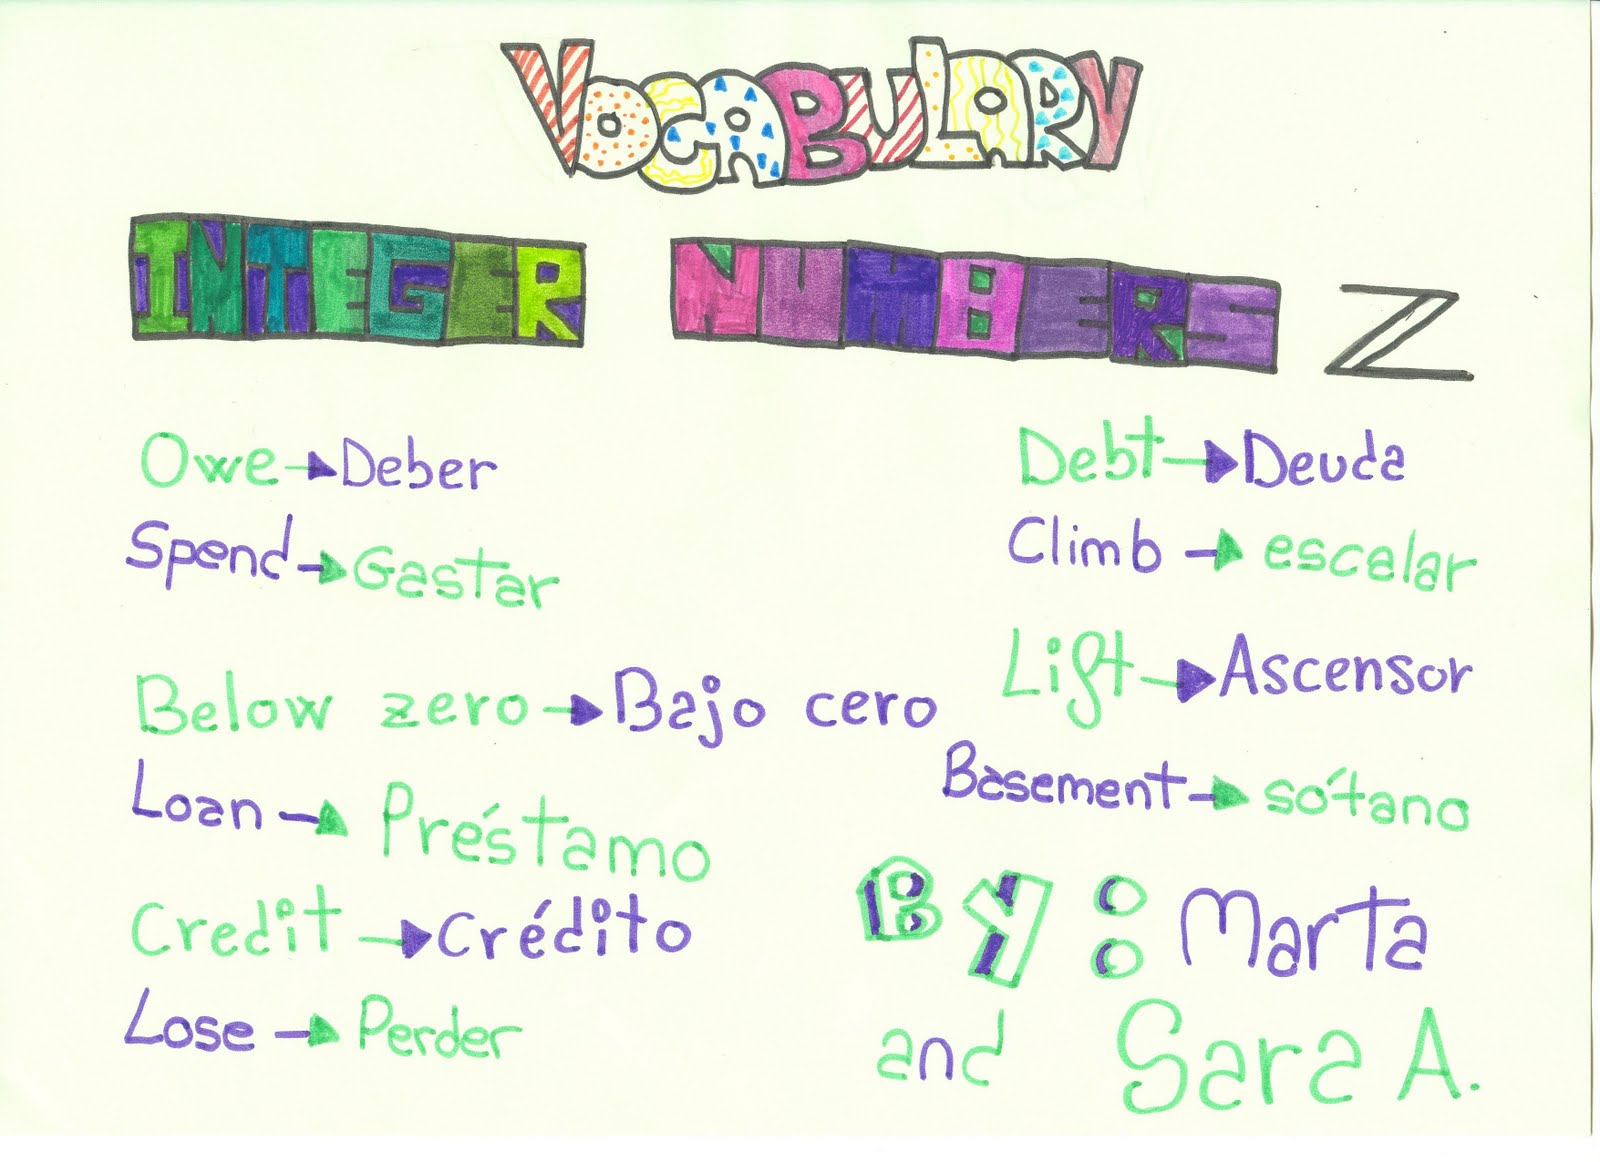 VOCABULARY
INTEGER NUMBERS Z
Owe → Deber
Spend → Gastar
Below zero → Bajo cero
Loan → Préstamo
Credit → Crédito
Lose → Perder
Debt → Deuda
Climb → escalar
Lift → Ascensor
Basement → sótano
BY: Marta
and Sara A.